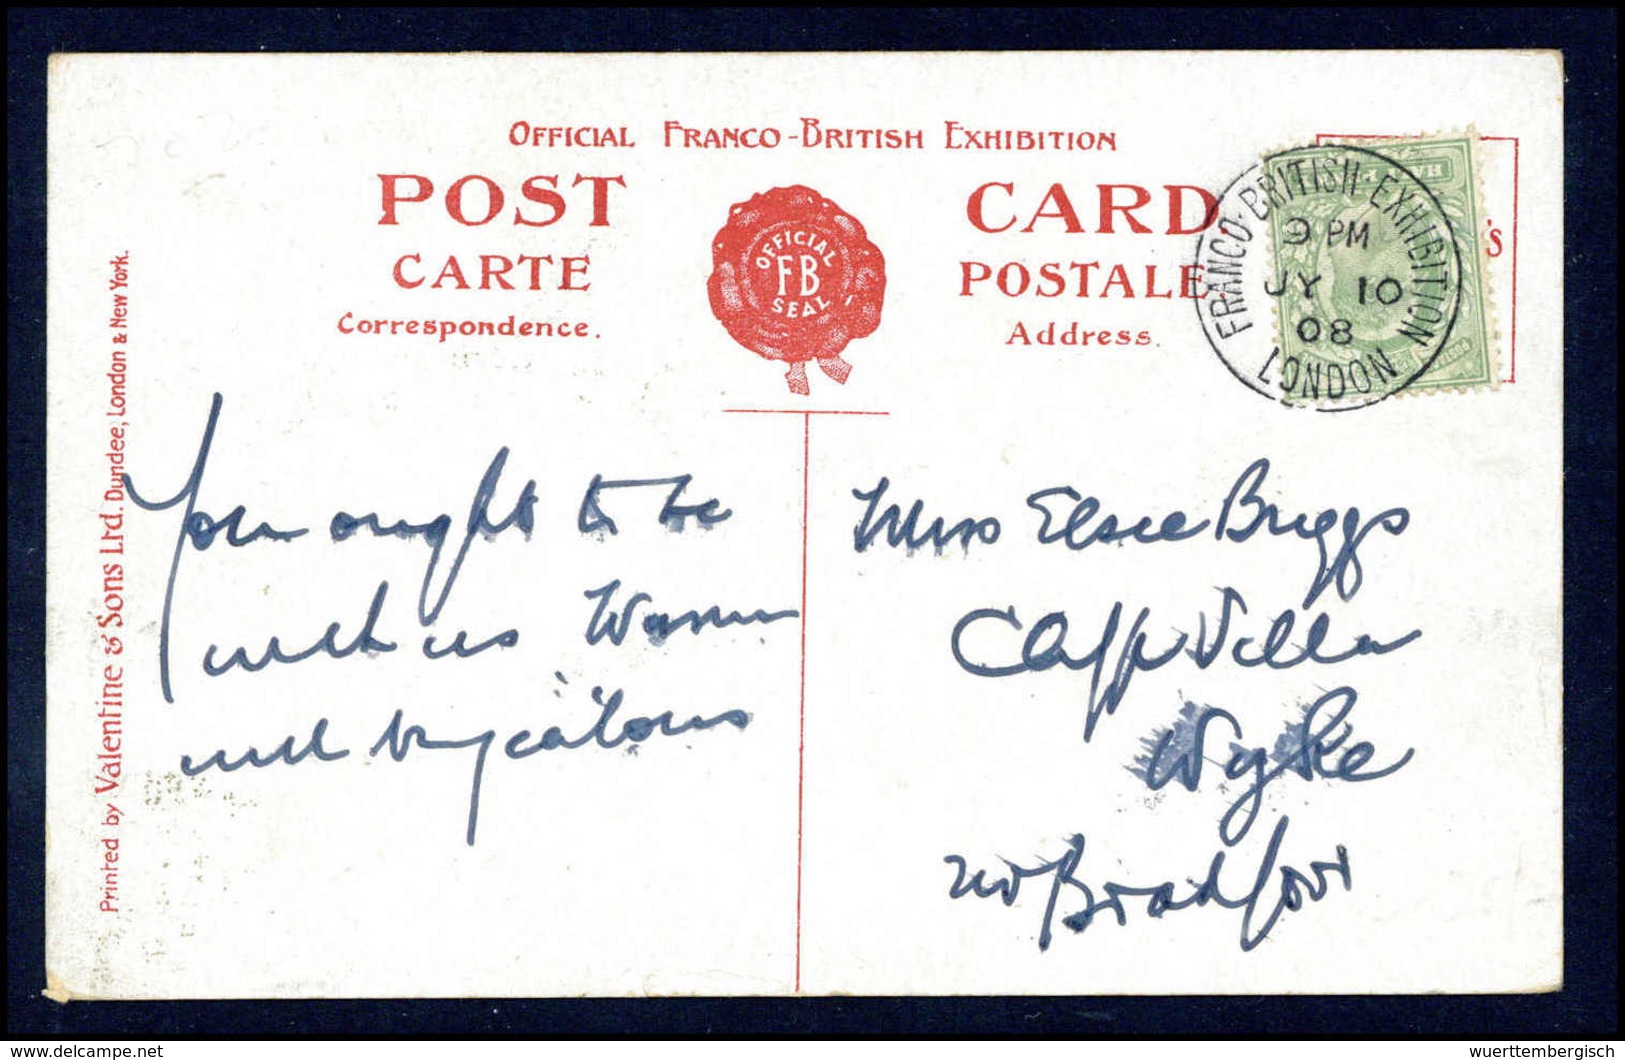 OFFICIAL FRANCO-BRITISH EXHIBITION
POST CARD
CARTE POSTALE
Correspondence.
Address.
OFFICIAL
FB
SEAL
FRANCO-BRITISH EXHIBITION
9 PM
JY 10
08
LONDON
HA
'S
Printed by Valentine & Sons Ltd. Dundee, London & New York.
You ought to be
with us
Miss Elsie Briggs
Villa
Wyke
nr Bradford
delcampe.net
wuerttembergisch